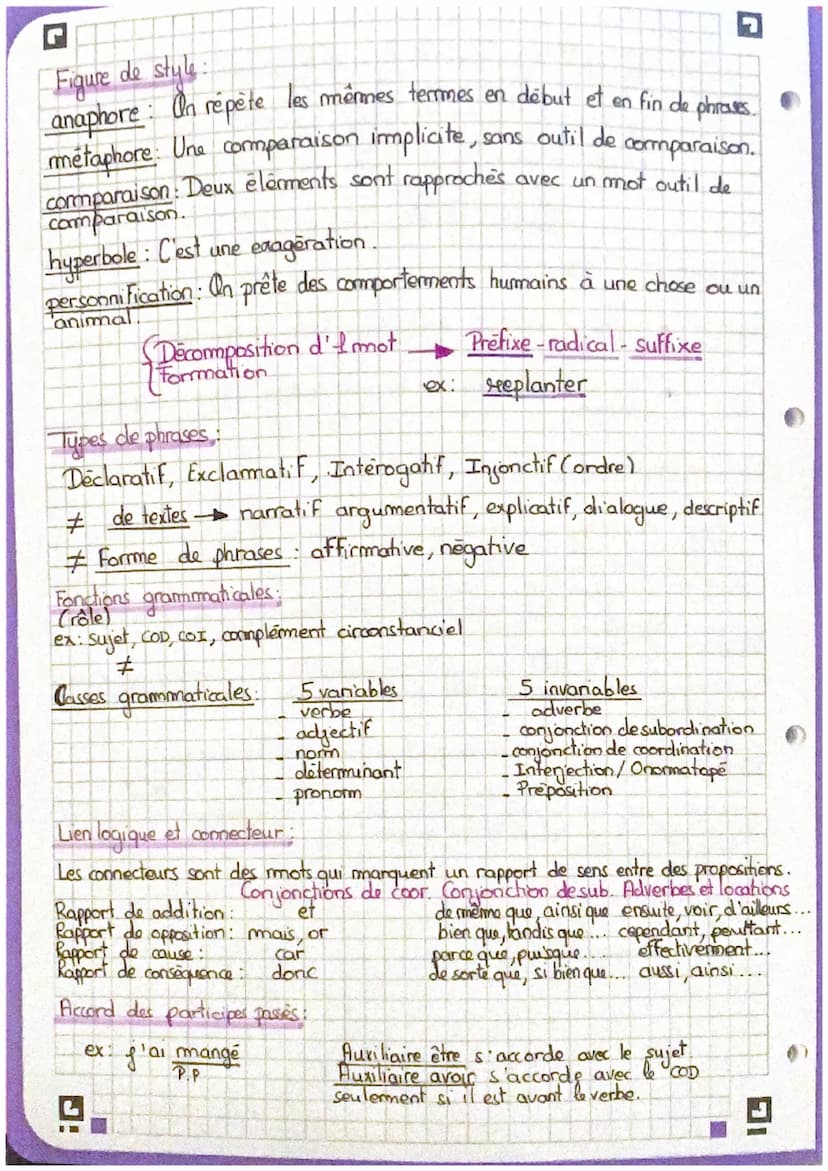 Figure de style :
anaphore : On répète les mêmes termes en début et en fin de phrases.
métaphore : Une comparaison implicite, sans outil de comparaison.
comparaison : Deux éléments sont rapprochés avec un mot outil de
comparaison.
hyperbole : C'est une exagération.
personnification : On prête des comportements humains à une chose ou un
animal.
Décomposition d'1 mot → Préfixe - radical - suffixe
Formation
ex : replanter
Types de phrases :
Déclaratif, Exclamatif, Intérogatif, Injonctif (ordre)
≠ de textes → narratif argumentatif, explicatif, dialogue, descriptif
≠ Forme de phrases : affirmative, négative
Fonctions grammaticales :
(rôle)
ex : sujet, COD, COI, complément circonstanciel
≠
Classes grammaticales : 5 variables 5 invariables
- verbe - adverbe
- adjectif - conjonction de subordination
- nom - conjonction de coordination
- déterminant - Interjection / Onomatopé
- pronom - Préposition
Lien logique et connecteur :
Les connecteurs sont des mots qui marquent un rapport de sens entre des propositions.
Conjonctions de coor. Conjonction de sub. Adverbes et locations
Rapport de addition : et de même que, ainsi que ensuite, voir, d'ailleurs...
Rapport de opposition : mais, or bien que, tandis que... cependant, pourtant...
Rapport de cause : car parce que, puisque... effectivement...
Rapport de conséquence : donc de sorte que, si bien que... aussi, ainsi...
Accord des participes passés :
ex : j'ai mangé Auxiliaire être s'accorde avec le sujet.
P.P Auxiliaire avoir s'accorde avec le COD
seulement si il est avant le verbe.